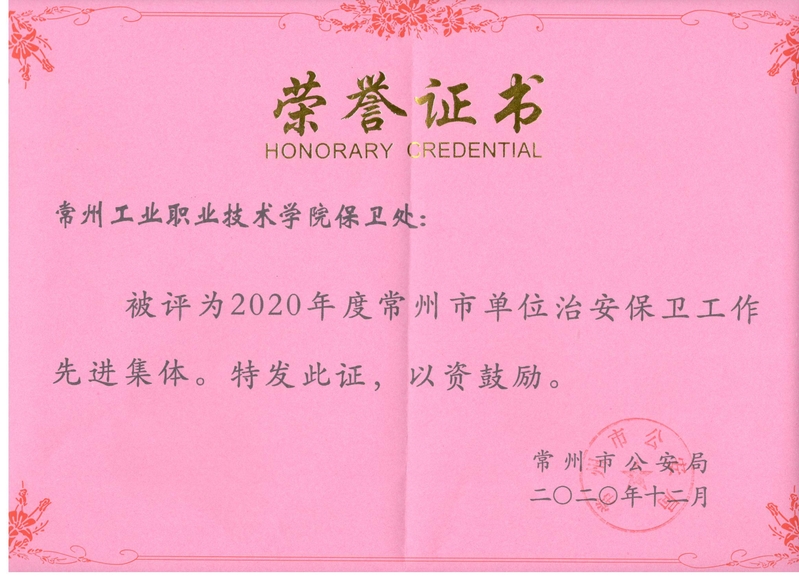 荣誉证书
HONORARY CREDENTIAL
常州工业职业技术学院保卫处：
被评为2020年度常州市单位治安保卫工作
先进集体。特发此证，以资鼓励。
常州市公安局
二〇二〇年十二月
常州市公安局